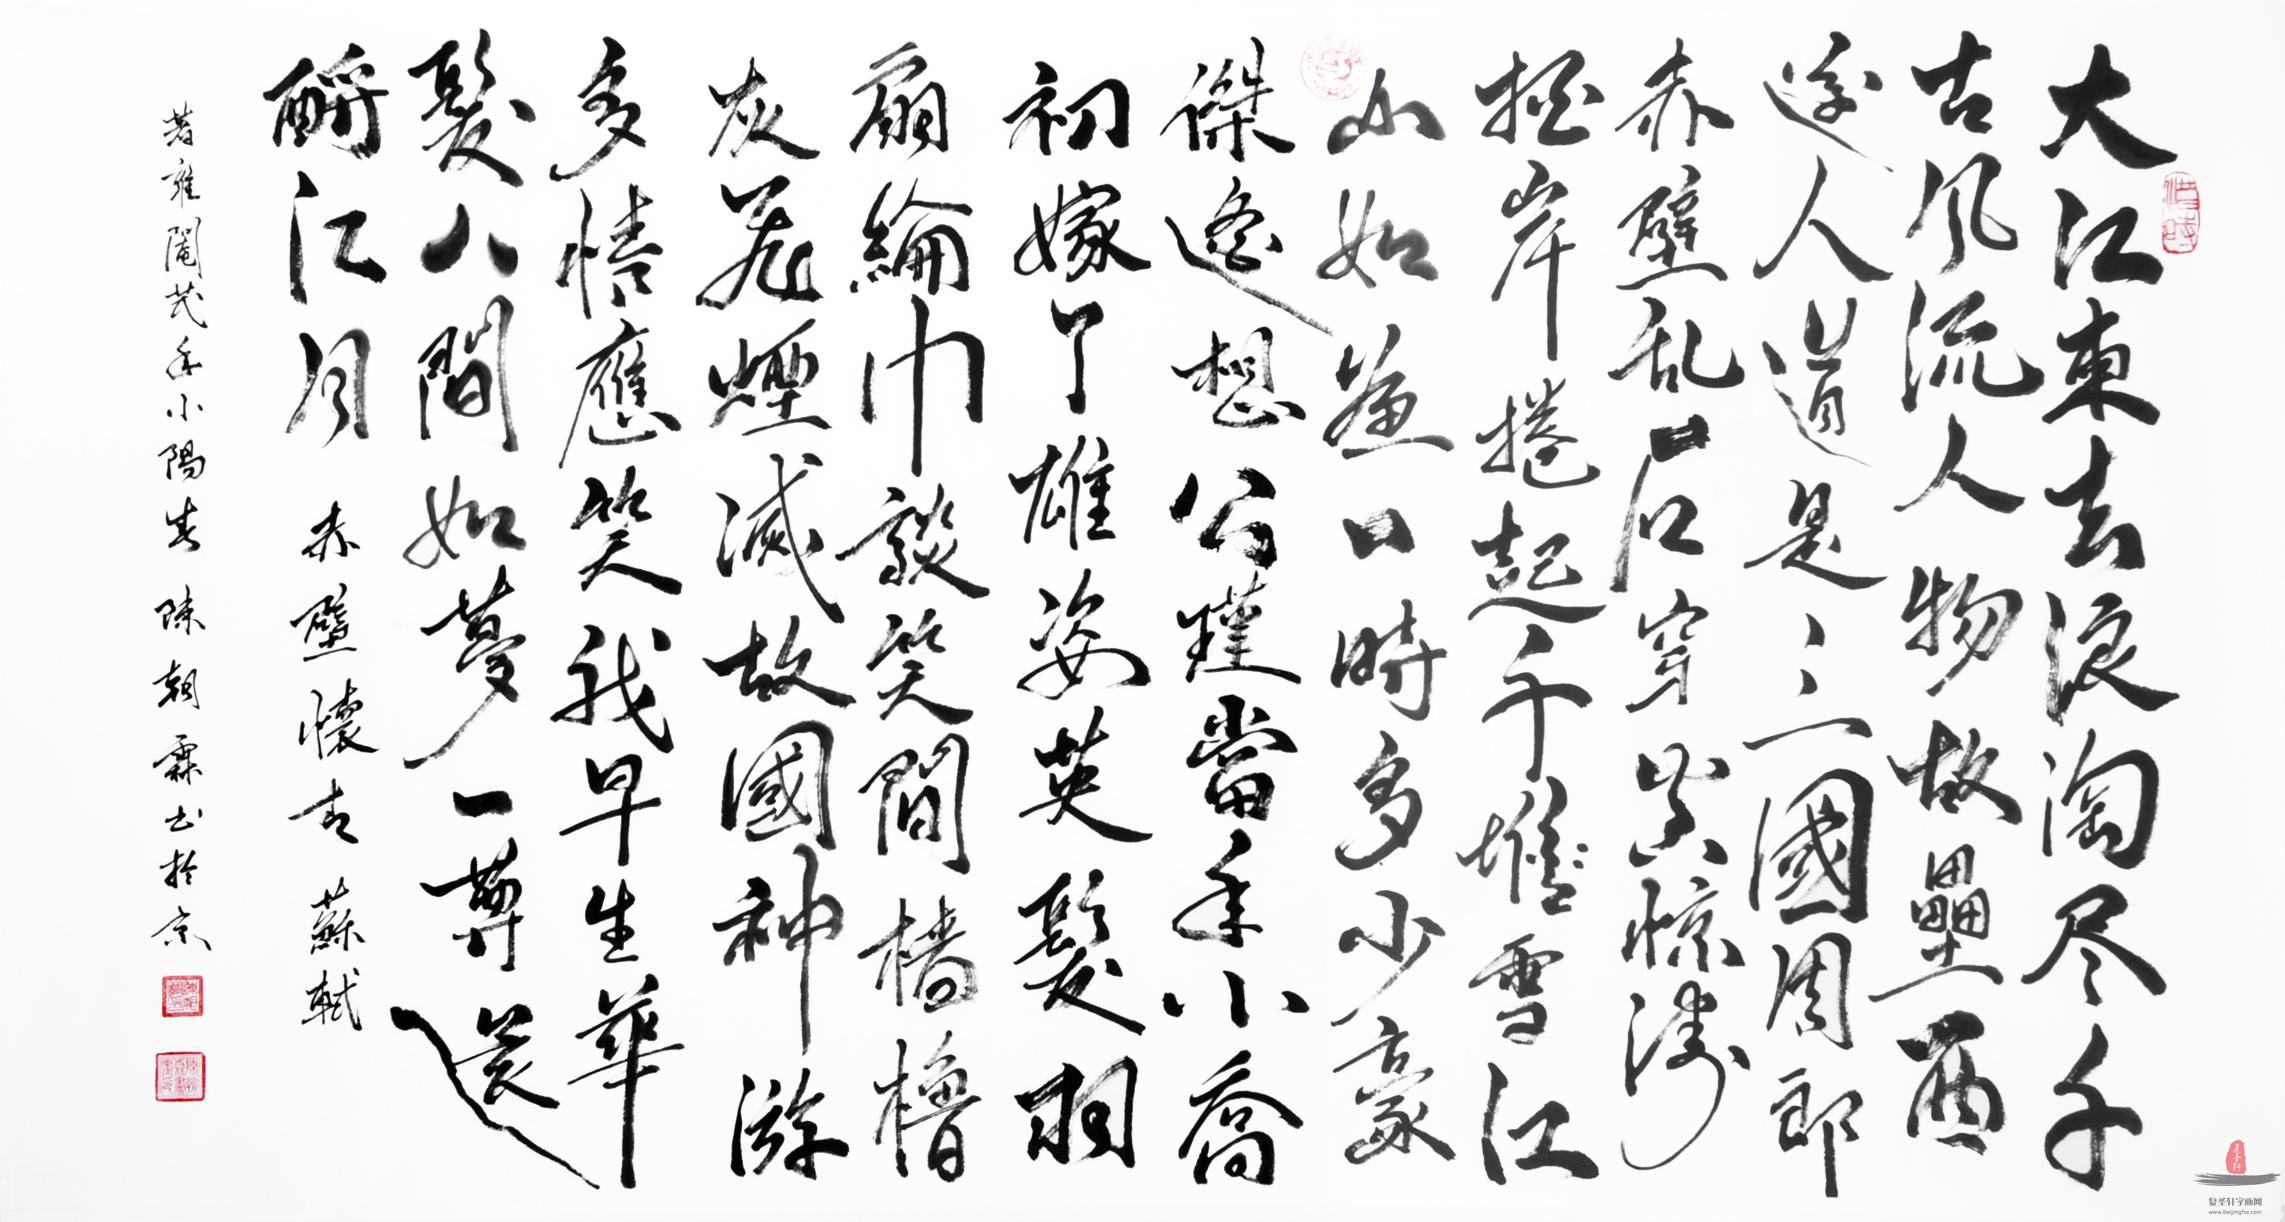 大江東去浪淘尽千
古风流人物故壘西
邊人道是三國周郎
赤壁乱石穿空惊濤
拍岸捲起千堆雪江
山如畫一時多少豪
傑遙想公瑾當年小喬
初嫁了雄姿英發羽
扇綸巾談笑間檣櫓
灰飛煙滅故國神游
多情應笑我早生華
髮人間如夢一尊還
酹江月 赤壁懷古 蘇軾
著雍閹茂年小陽春 陳朝霖书於京
复圣轩字画网
www.beijingfsx.com